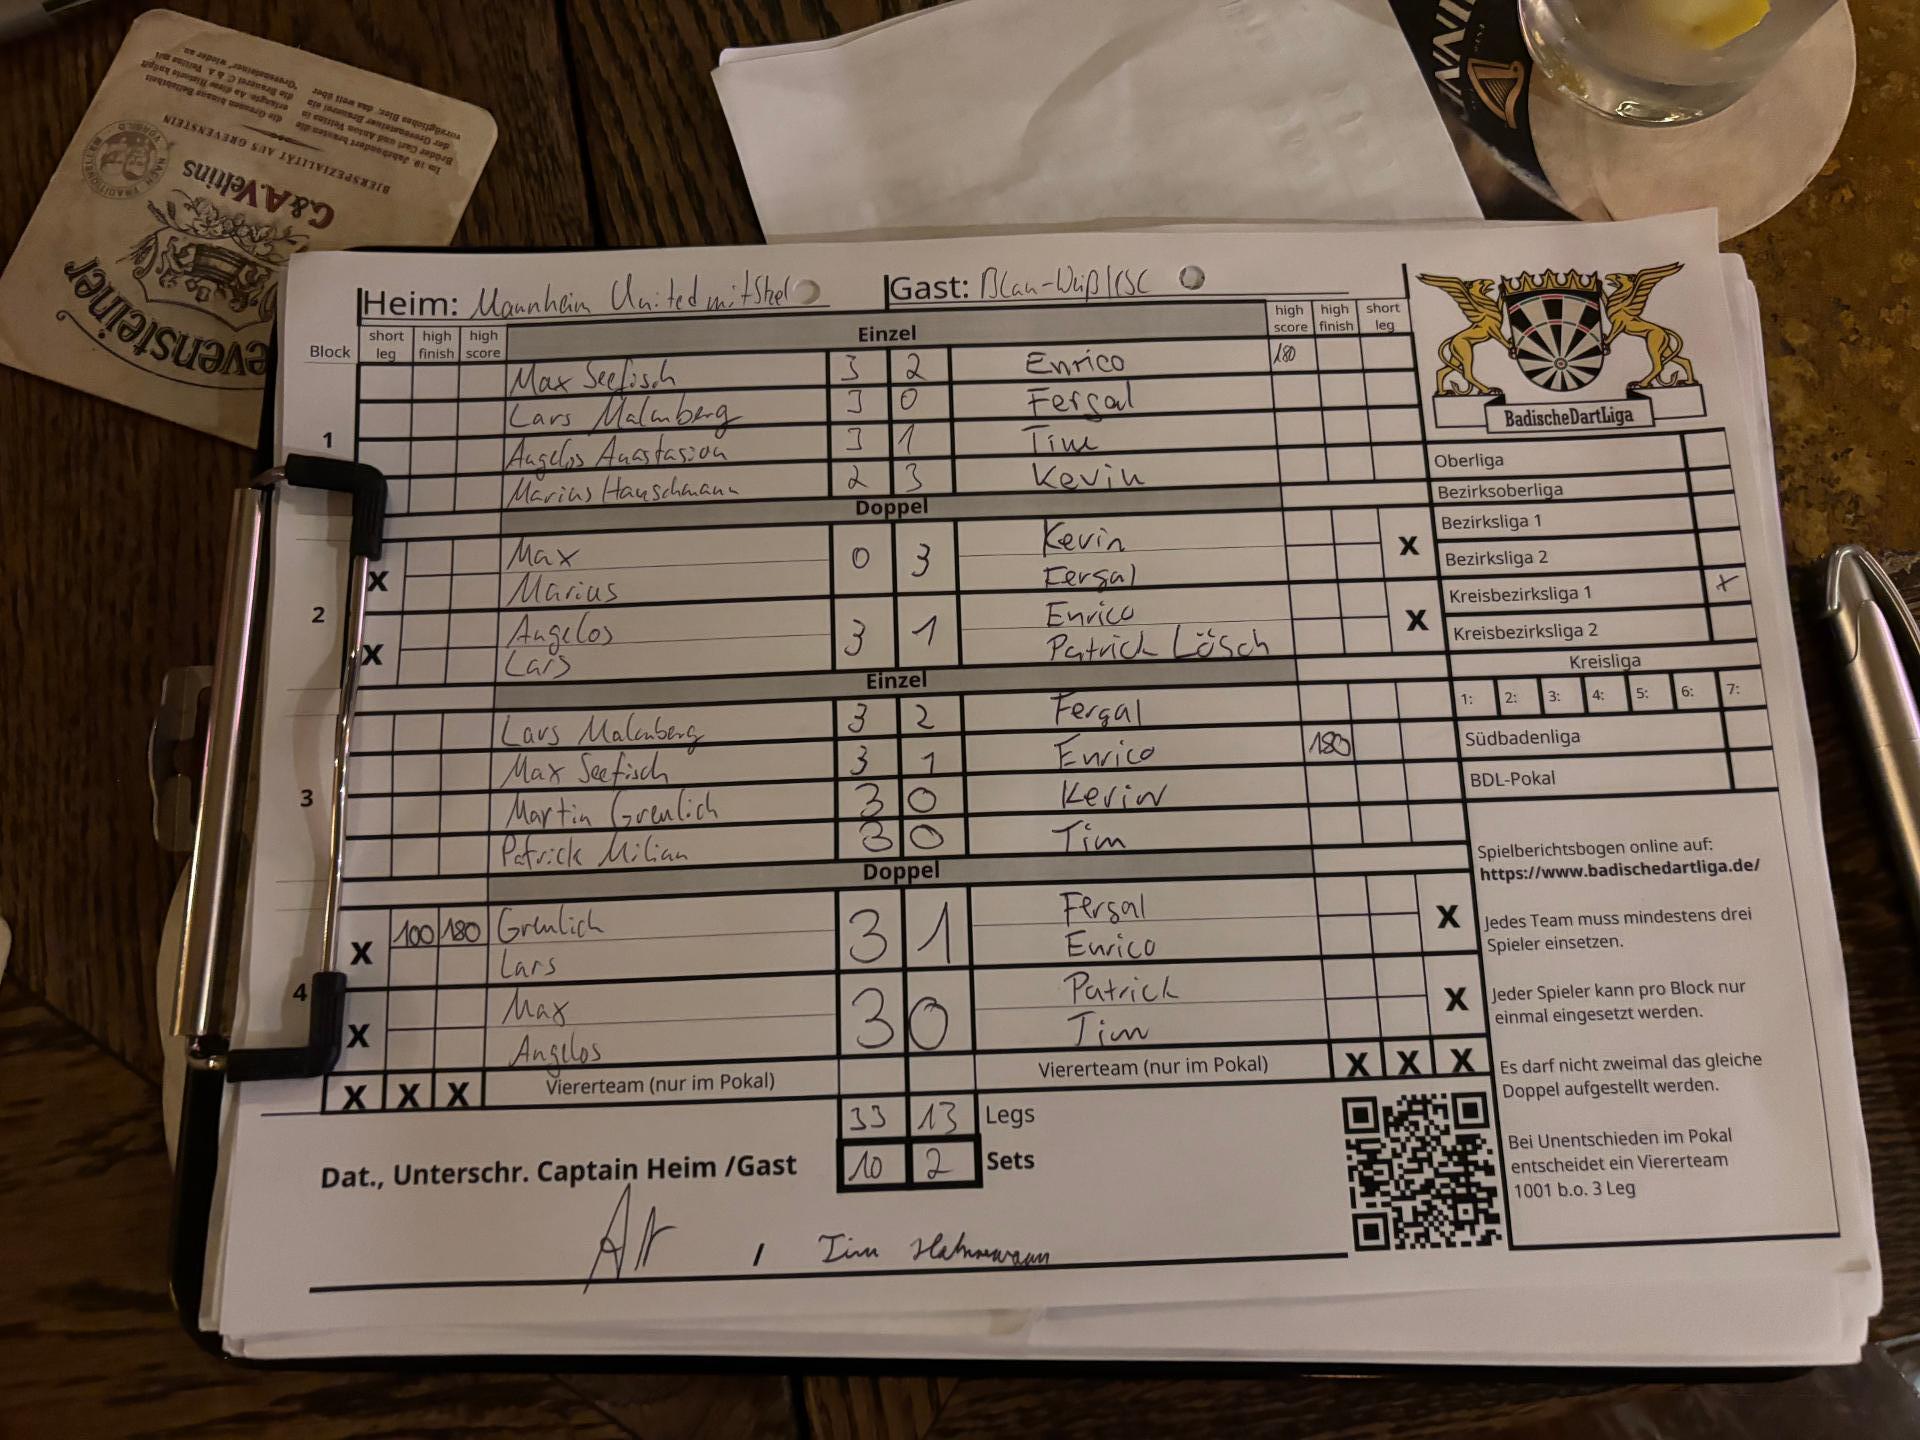 Im 19. Jahrhundert brauten die
Brüder Carl und Anton Veltins in
der Grevensteiner Brauerei ein
vorzügliches Bier, das weit über
die Grenzen hinaus Beliebtheit
erlangte. An diese Historie knüpft
die Brauerei C. & A. Veltins mit
"Grevensteiner" wieder an.
BIERSPEZIALITÄT AUS GREVENSTEIN
C.&A.Veltins
evensteiner
Heim: Mannheim United mitStel
Gast: Blau-Weiß KSC
Block
short leg
high finish
high score
Einzel
high score
high finish
short leg
Max Seefisch 3 2 Enrico 180
Lars Malmberg 3 0 Fergal
1
Angelos Anastasiou 3 1 Tim
Marius Hauschmann 2 3 Kevin
Doppel
X Max 0 3 Kevin X
Marius Fergal
2
X Angelos 3 1 Enrico X
Lars Patrick Lösch
Einzel
Lars Malmberg 3 2 Fergal
Max Seefisch 3 1 Enrico 180
3
Martin Greulich 3 0 Kevin
Patrick Milian 3 0 Tim
Doppel
X 100 180 Greulich 3 1 Fergal X
Lars Enrico
4
X Max 3 0 Patrick X
Angelos Tim
X X X Viererteam (nur im Pokal) Viererteam (nur im Pokal) X X X
33 13 Legs
10 2 Sets
Dat., Unterschr. Captain Heim /Gast
/ Tim Hahnemann
BadischeDartLiga
Oberliga
Bezirksoberliga
Bezirksliga 1
Bezirksliga 2
Kreisbezirksliga 1 x
Kreisbezirksliga 2
Kreisliga
1: 2: 3: 4: 5: 6: 7:
Südbadenliga
BDL-Pokal
Spielberichtsbogen online auf:
https://www.badischedartliga.de/
Jedes Team muss mindestens drei
Spieler einsetzen.
Jeder Spieler kann pro Block nur
einmal eingesetzt werden.
Es darf nicht zweimal das gleiche
Doppel aufgestellt werden.
Bei Unentschieden im Pokal
entscheidet ein Viererteam
1001 b.o. 3 Leg